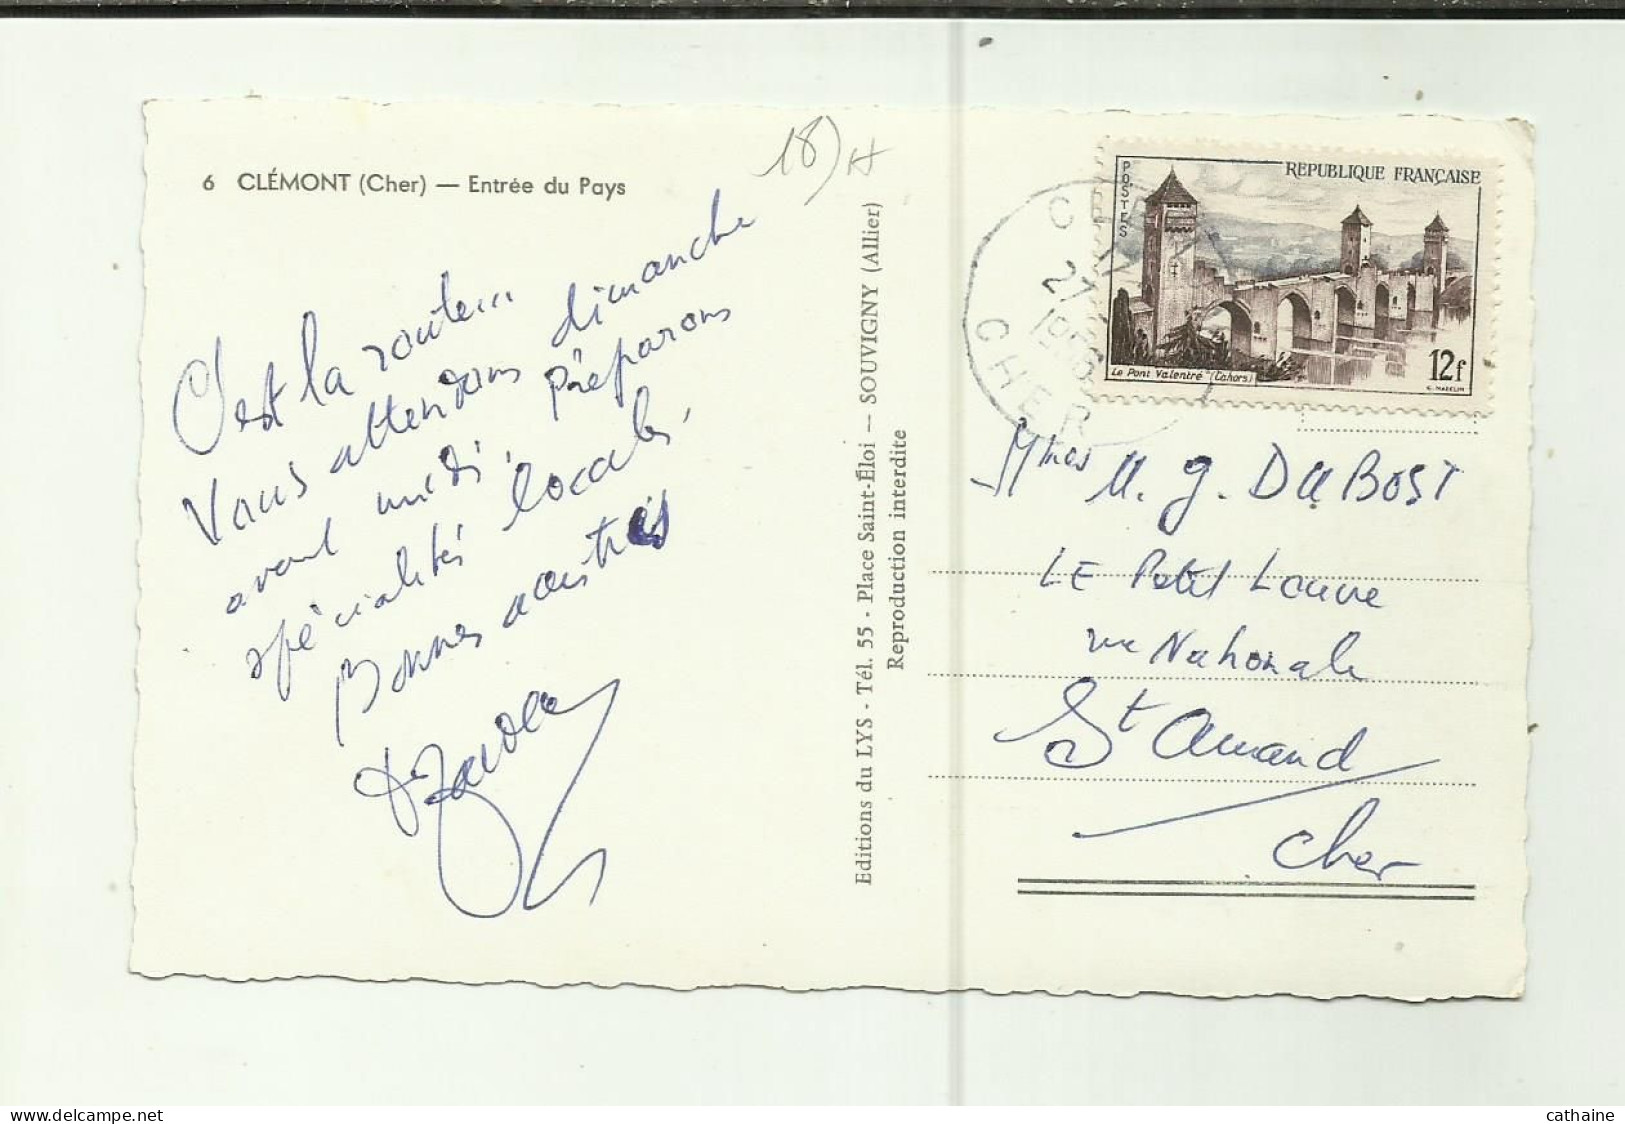 18)
6 CLÉMONT (Cher) — Entrée du Pays
C'est la route...
Vous attendons dimanche
avant midi, préparons
spécialités locales,
Bonnes amitiés
Editions du LYS - Tél. 55 - Place Saint-Éloi — SOUVIGNY (Allier)
Reproduction interdite
POSTES
REPUBLIQUE FRANÇAISE
Le Pont Valentré (Cahors)
12f
27
1956
CHER
Mmes M. G. DUBOST
LE Petit Louvre
rue Nationale
St Amand
Cher
cathaine